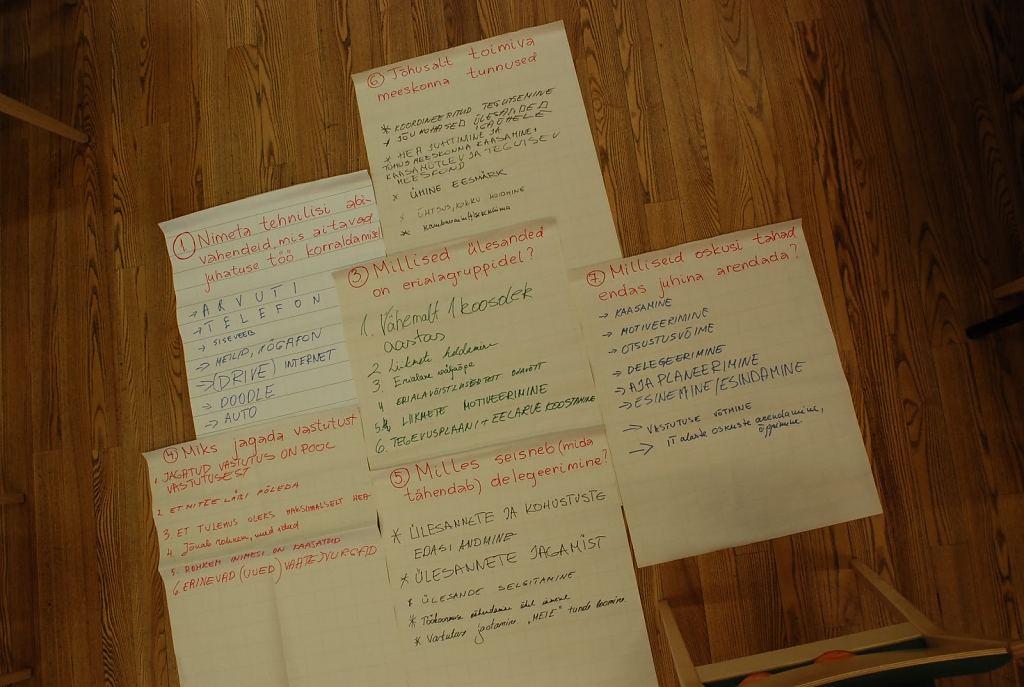 ⑥ Tõhusalt toimiva
meeskonna tunnused
* KOORDINEERITUD TEGUTSEMINE
* JÕUKOHASED ÜLESANDED
IGAÜHELE
* HEA JUHTIMINE JA
TÕHUS MEESKONNA KAASAMINE,
KAASAMÕTLEV JA TEGUTSEV
MEESKOND
* ÜHINE EESMÄRK
* ÜHTSUS, KOKKU HOIDMINE
*
① Nimeta tehnilisi abi-
vahendeid, mis aitavad
juhatuse töö korraldamisel
→ ARVUTI
→ TELEFON
→ SISEVEEB
→ MEILID, RÖGAFON
→ (DRIVE) INTERNET
→ DOODLE
→ AUTO
③ Millised ülesanded
on erialagruppidel?
1. Vähemalt 1 koosolek
aastas
2 Liikmete hoidmine
3 Erialane väljaõpe
4 ERIALAVÕISTLUSED
5 LIIKMETE MOTIVEERIMINE
6. TEGEVUSPLAANI + EELARVE KOOSTAMINE
⑦ Milliseid oskusi tahad
endas juhina arendada?
→ KAASAMINE
→ MOTIVEERIMINE
→ OTSUSTUSVÕIME
→ DELEGEERIMINE
→ AJA PLANEERIMINE
→ ESINEMINE/ESINDAMINE
→ VASTUTUSE VÕTMINE
→ IT alaste oskuste arendamine,
õppimine
④ Miks jagada vastutust
1. JAGATUD VASTUTUS ON POOL
VASTUTUSEST
2 ET MITTE LÄBI PÕLEDA
3. ET TULEMUS OLEKS MAKSIMAALSELT HEA
4. Jõuab rohkem, uued ideed
5. ROHKEM INIMESI ON KAASATUD
6. ERINEVAD (UUED) VAATENURGAD
⑤ Milles seisneb (mida
tähendab) delegeerimine?
* ÜLESANNETE JA KOHUSTUSTE
EDASI ANDMINE
* ÜLESANNETE JAGAMIST
* ÜLESANDE SELGITAMINE
* Töökoormuse vähendamine ühel inimesel
* Vastutuse jaotamine. "MEIE" tunde loomine